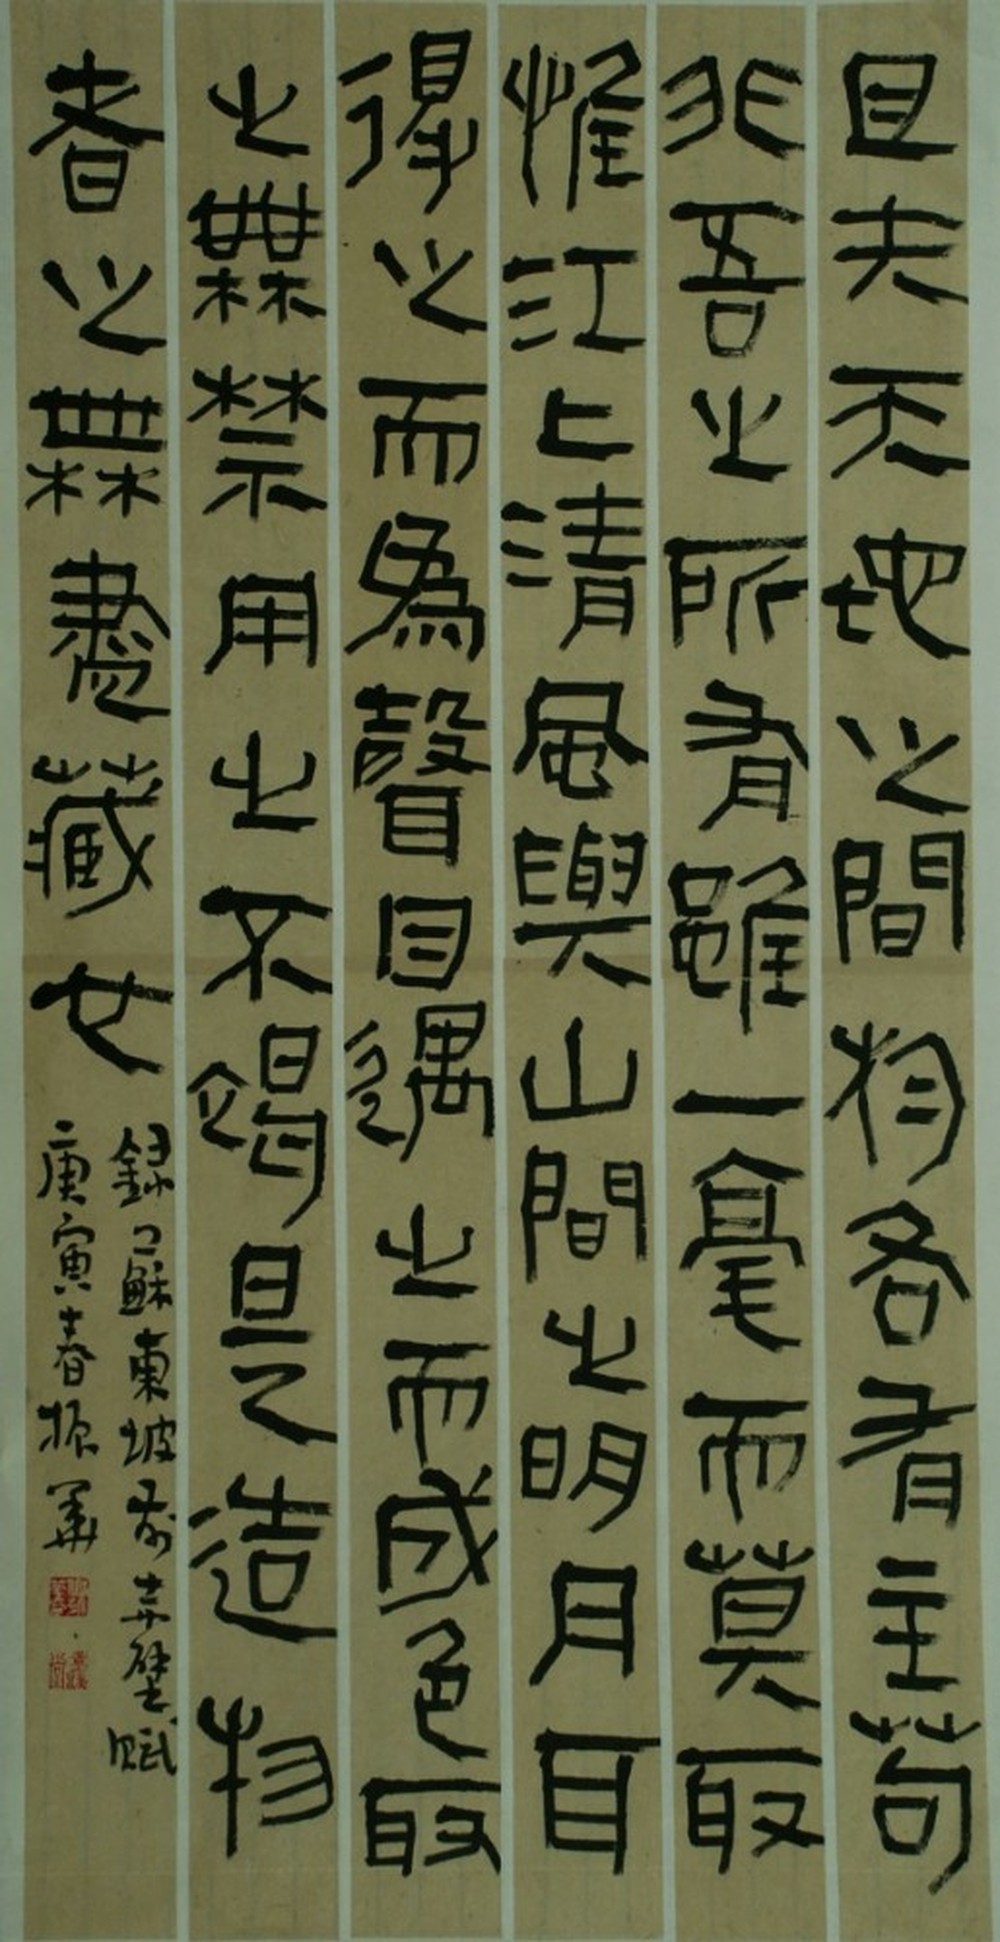 且夫天地之間物各有主苟
非吾之所有雖一毫而莫取
惟江上清風與山間之明月耳
得之而爲聲目遇之而成色取
之無禁用之不竭是造物
者之無盡藏也
録蘇東坡前赤壁賦
庚寅春振華